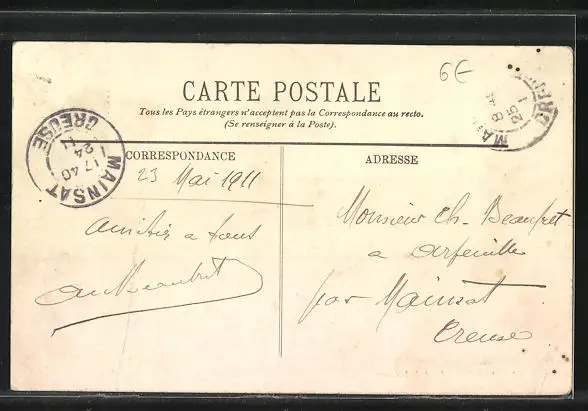 6€
CARTE POSTALE
Tous les Pays étrangers n'acceptent pas la Correspondance au recto.
(Se renseigner à la Poste).
MAINSAT
CREUSE
17 40
24
CORRESPONDANCE
23 Mai 1911
Amitiés a tous
ADRESSE
Monsieur Ch. Beaufret
a arfeuille
par Mainsat
Creuse